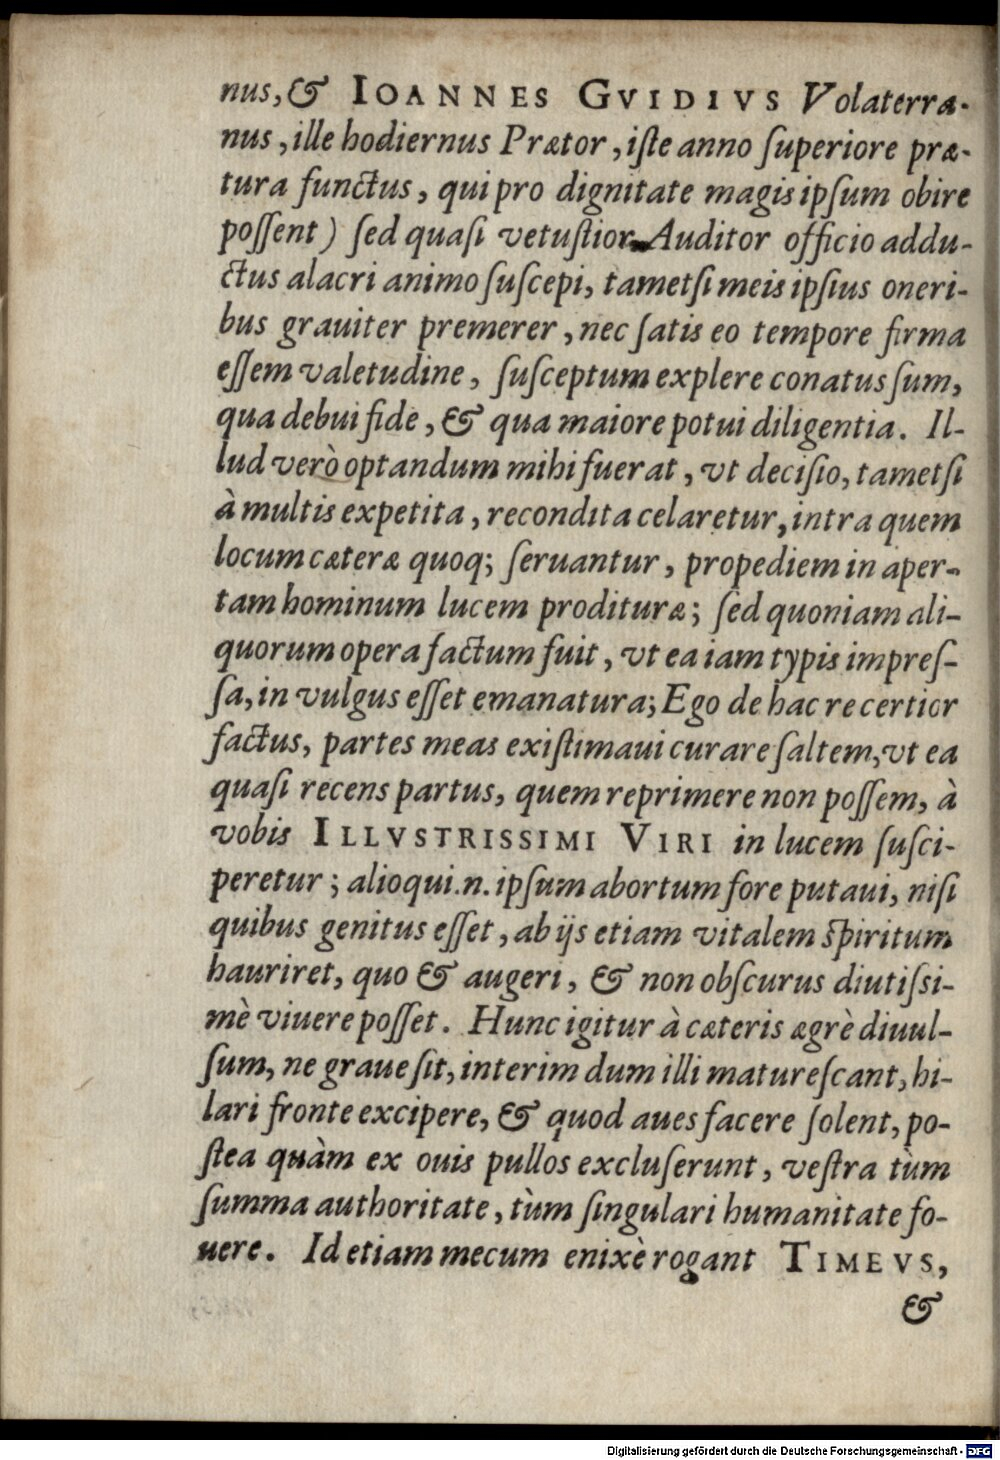 nus, & IOANNES GVIDIVS Volaterra-
nus, ille hodiernus Prætor, iſte anno ſuperiore præ-
tura functus, qui pro dignitate magis ipſum obire
poſſent) ſed quaſi vetuſtior Auditor officio addu-
ctus alacri animo ſuſcepi, tametſi meis ipſius oneri-
bus grauiter premerer, nec ſatis eo tempore firma
eſſem valetudine, ſuſceptum explere conatus ſum,
qua debui fide, & qua maiore potui diligentia. Il-
lud verò optandum mihi fuerat, vt deciſio, tametſi
à multis expetita, recondita celaretur, intra quem
locum cæteræ quoq; ſeruantur, propediem in aper-
tam hominum lucem proditúræ; ſed quoniam ali-
quorum opera factum fuit, vt ea iam typis impreſ-
ſa, in vulgus eſſet emanatura; Ego de hac re certior
factus, partes meas exiſtimaui curare ſaltem, vt ea
quaſi recens partus, quem reprimere non poſſem, à
vobis ILLVSTRISSIMI VIRI in lucem ſuſci-
peretur; alioqui.n. ipſum abortum fore putaui, niſi
quibus genitus eſſet, ab ijs etiam vitalem ſpiritum
hauriret, quo & augeri, & non obſcurus diutiſsi-
mè viuere poſſet. Hunc igitur à cæteris ægrè diuul-
ſum, ne graue ſit, interim dum illi matureſcant, hi-
lari fronte excipere, & quod aues facere ſolent, po-
ſtea quàm ex ouis pullos excluſerunt, veſtra tùm
ſumma authoritate, tùm ſingulari humanitate fo-
uere. Id etiam mecum enixè rogant TIMEVS,
&
Digitalisierung gefördert durch die Deutsche Forschungsgemeinschaft - DFG